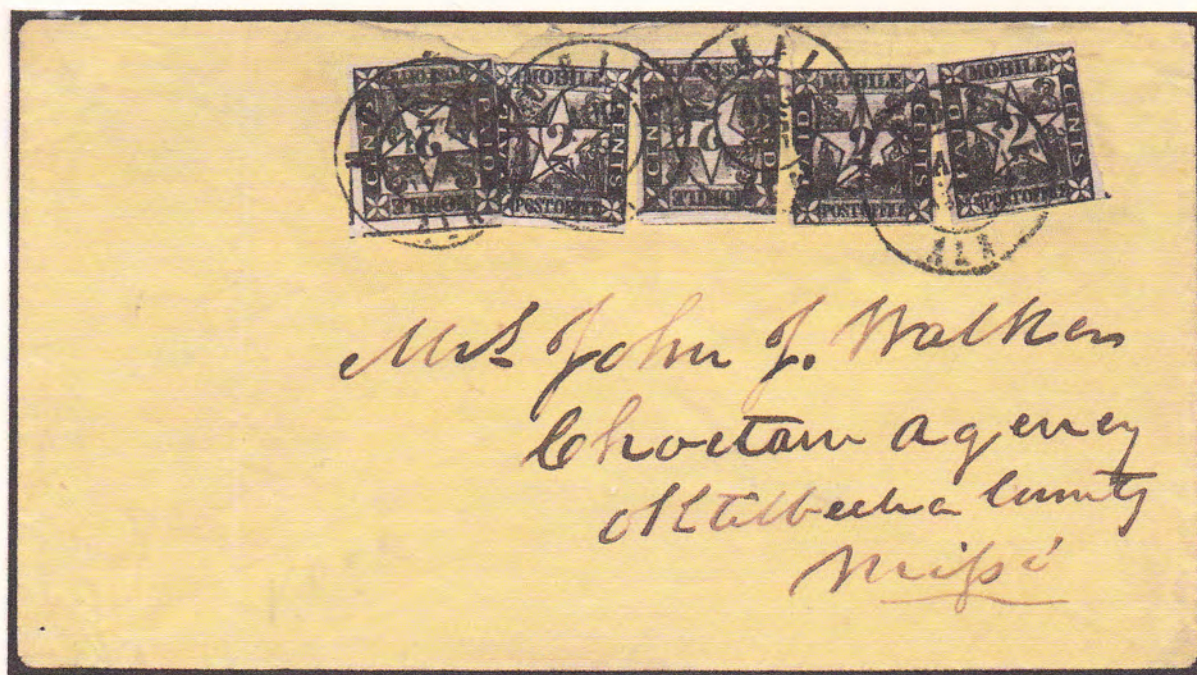 MOBILE
PAID 2 CENTS
POST OFFICE
MOBILE
PAID 2 CENTS
POST OFFICE
MOBILE
PAID 2 CENTS
POST OFFICE
MOBILE
PAID 2 CENTS
POST OFFICE
MOBILE
PAID 2 CENTS
POST OFFICE
ALA
ALA
Mrs John J. Walker
Choctaw Agency
Oktibbeha County
Missi